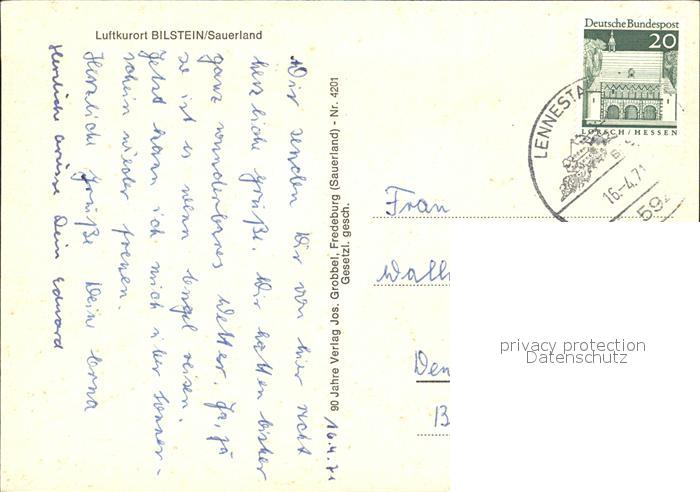 Luftkurort BILSTEIN/Sauerland
16.4.71
Wir senden Dir von hier recht
herzliche Grüße. Wir hatten bisher
ganz wunderbares Wetter. Ja, ja
so ist es wenn Engel reisen.
Jetzt kann ich mich über Sonnen-
schein wieder freuen.
Herzliche Grüße Deine Erna
Herzliche Grüsse Dein Eduard
90 Jahre Verlag Jos. Grobbel, Fredeburg (Sauerland) - Nr. 4201
Gesetzl. gesch.
Deutsche Bundespost
20
LORSCH/HESSEN
LENNESTA
16.-4.71
592
Frau
Wall
Den
B
privacy protection
Datenschutz